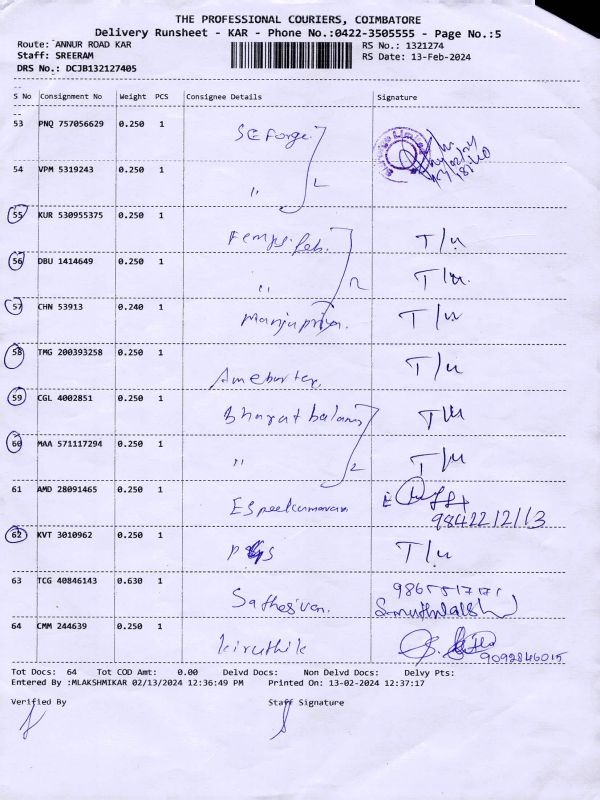 THE PROFESSIONAL COURIERS, COIMBATORE
Delivery Runsheet - KAR - Phone No.:0422-3505555 - Page No.:5
Route: ANNUR ROAD KAR
RS No.: 1321274
Staff: SREERAM
RS Date: 13-Feb-2024
DRS No.: DCJB132127405
S No Consignment No Weight PCS Consignee Details Signature
53 PNQ 757056629 0.250 1 SE Forge
54 VPM 5319243 0.250 1 "
55 KUR 530955375 0.250 1 T/u
56 DBU 1414649 0.250 1 " T/u
57 CHN 53913 0.240 1 Manjupriya. T/u
58 TMG 200393258 0.250 1 T/u
59 CGL 4002851 0.250 1 Bharat T/u
60 MAA 571117294 0.250 1 " T/u
61 AMD 28091465 0.250 1
62 KVT 3010962 0.250 1 T/u
63 TCG 40846143 0.630 1
64 CMM 244639 0.250 1 Kiruthik 9092846015
Tot Docs: 64 Tot COD Amt: 0.00 Delvd Docs: Non Delvd Docs: Delvy Pts:
Entered By :MLAKSHMIKAR 02/13/2024 12:36:49 PM Printed On: 13-02-2024 12:37:17
Verified By Staff Signature